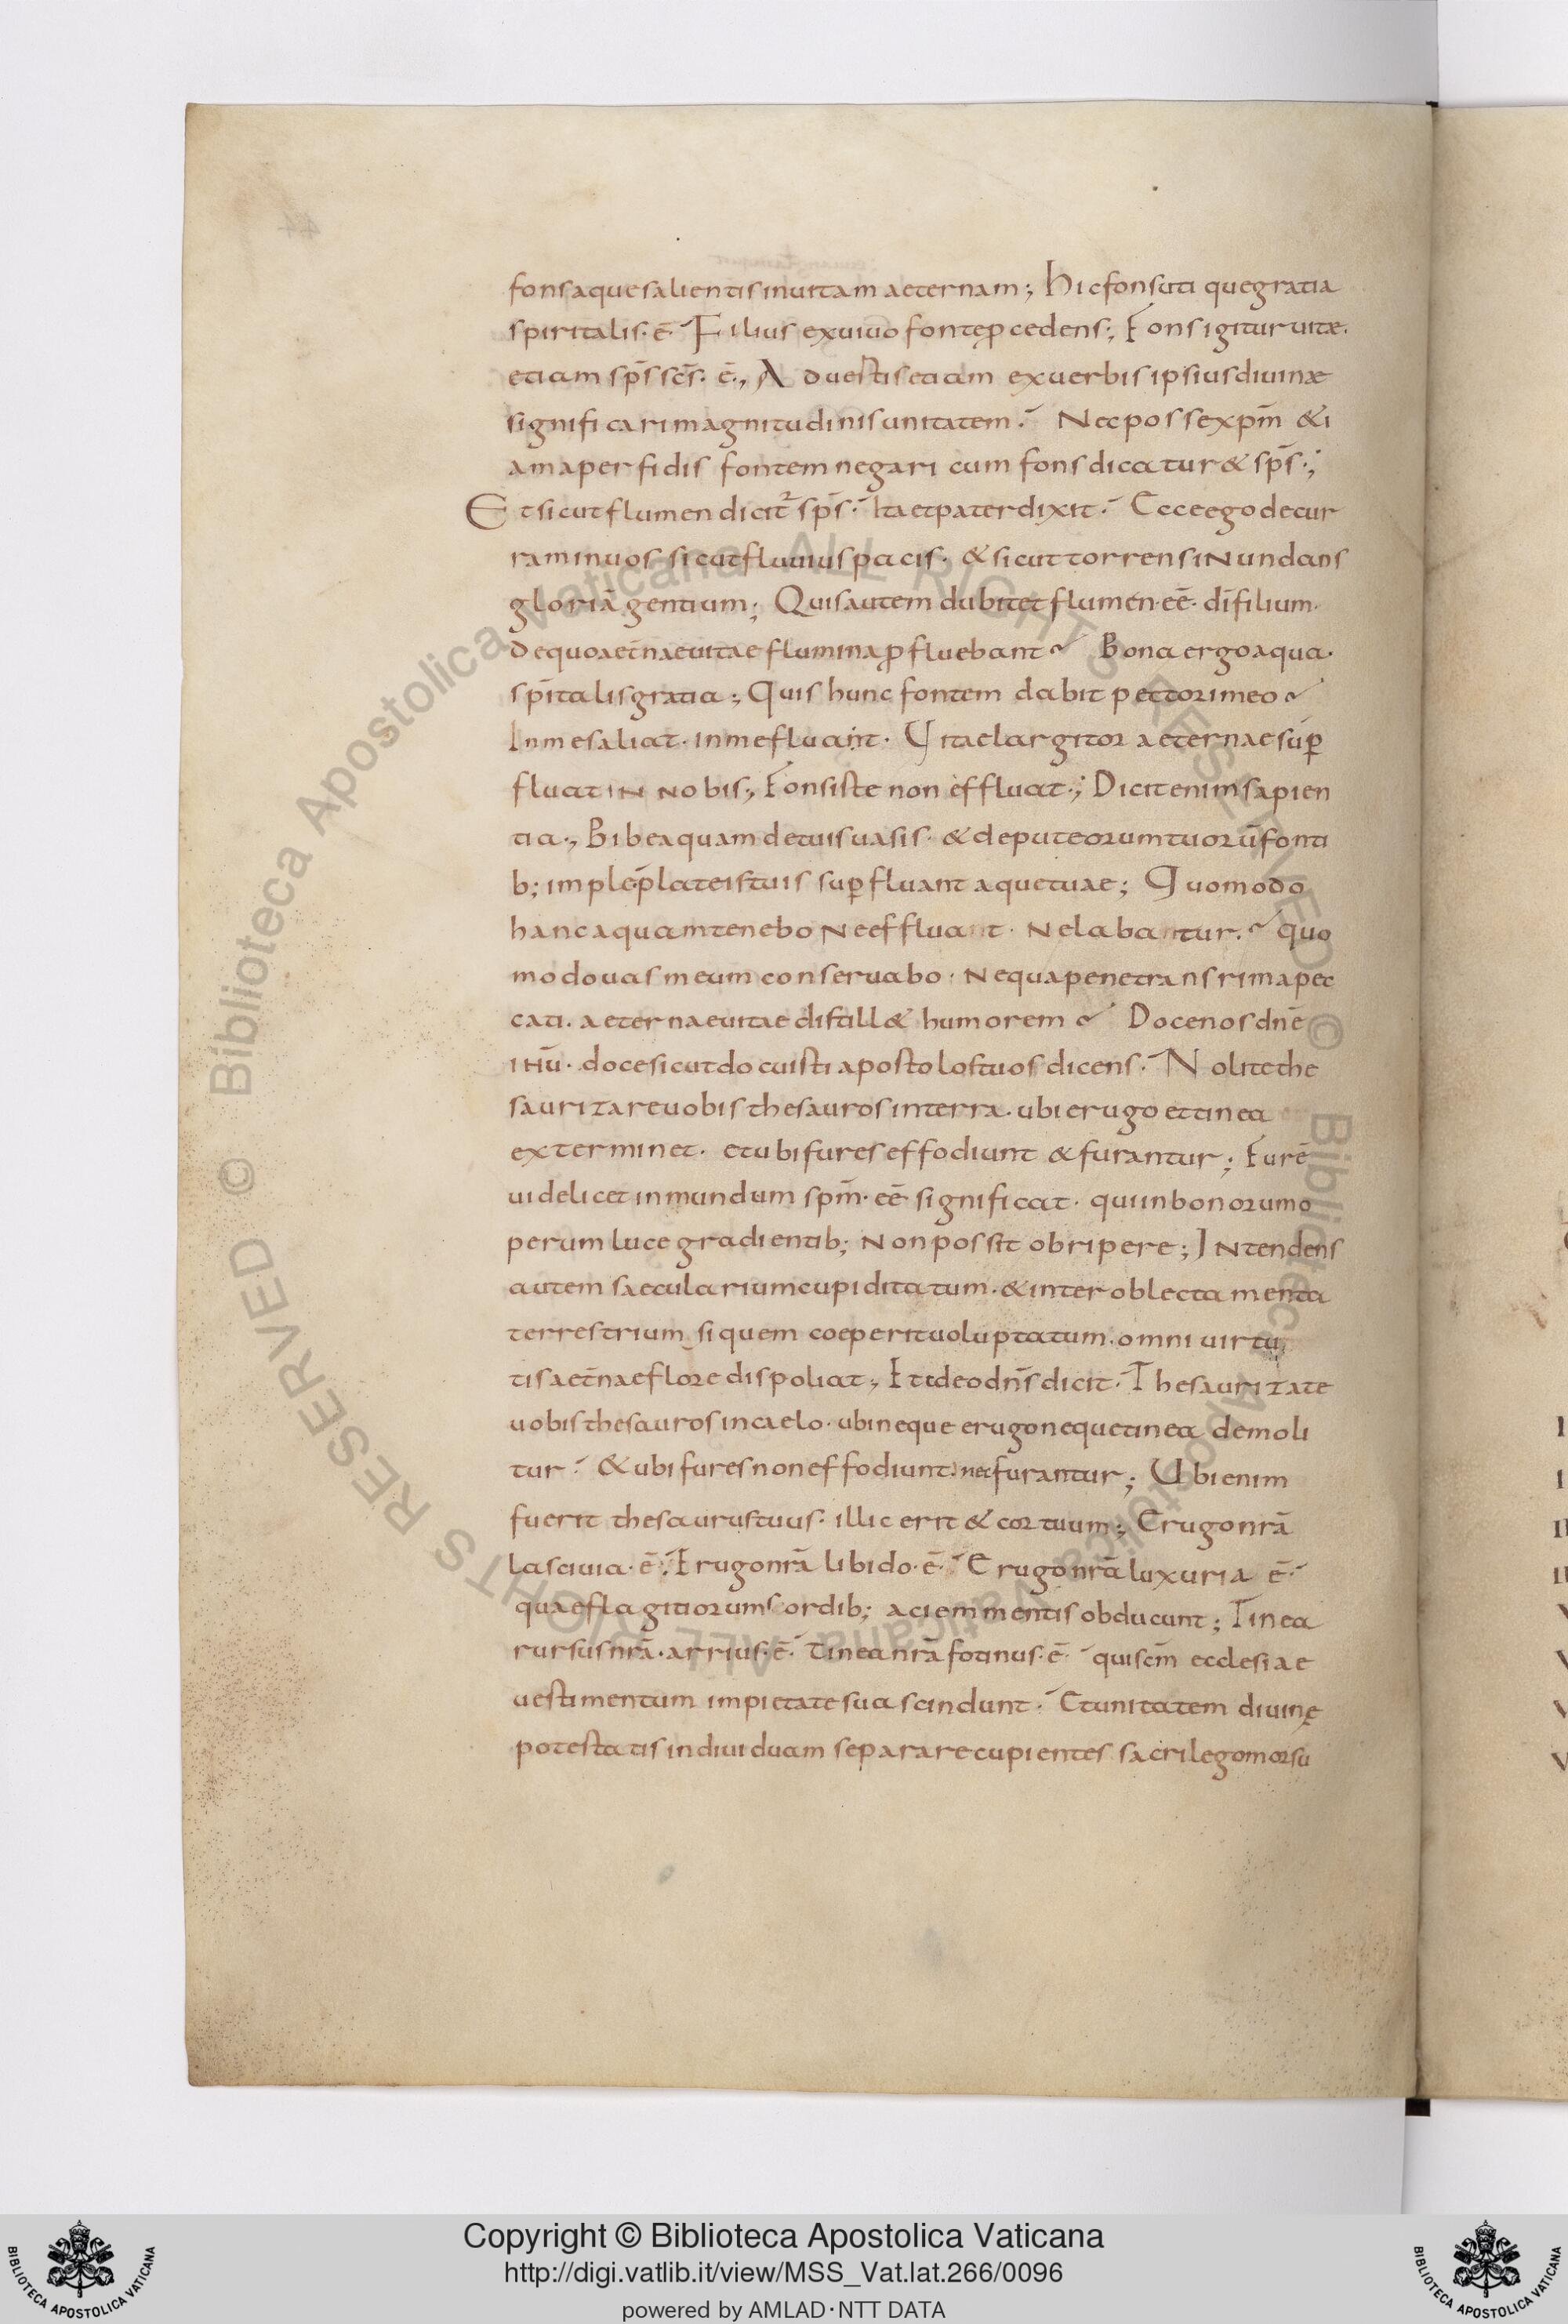 fons aque salientis in uitam aeternam; Hic fons utique gratia
spiritalis· ē· Filius ex uiuo fonte ꝓcedens; Fons igitur uitæ·
etiam sp̄s sc̄s· ē·, Aduestis etiam ex uerbis ipsius diuinæ
significari magnitudinis unitatem· Nec posse xp̄m &i
am a perfidis fontem negari cum fons dicatur & sp̄s·;
Et sicut flumen dicit᷑ sp̄s· Ita et pater dixit· Ecce ego decur
ram in uos sicut fluuius pacis· & sicut torrens inundans
gloriā gentium; Quis autem dubitet flumen· eē· dī filium·
de quo aet̄nae uitae flumina ꝓfluebant Bona ergo aqua·
sp̄italis gratia; Quis hunc fontem dabit pectori meo
In me saliat· in me fluant· Vitae largitor aeternae suꝑ
fluat in nobis; Fons iste non effluat·; Dicit enim sapien
tia·, Bibe aquam de tuis uasis· & de puteorum tuorū fonti
b; imple p̄lateis tuis suꝑfluant aque tuae; Quomodo
hanc aquam tenebo ne effluant· ne labantur· quo
modo uas meum conseruabo· ne qua penetrans rima pec
cati· aeternae uitae distill& humorem Doce nos dn̄e
ihū· doce sicut docuisti apostolos tuos dicens· Nolite the
saurizare uobis thesauros in terra· ubi erugo et tinea
exterminet· et ubi fures effodiunt & furantur; Furē
uidelicet inmundum sp̄m· eē significat· qui in bonorum o
perum luce gradientib; non possit obripere; Intendens
autem saecularium cupiditatum· & inter oblectamenta
terrestrium si quem coeperit uoluptatum· omni uirtu
tis aet̄nae flore dispoliat·, Et ideo dn̄s dicit· Thesaurizate
uobis thesauros in caelo· ubi neque erugo neque tinea demoli
tur· & ubi fures non effodiunt nec furantur; Ubi enim
fuerit thesaurus tuus· illic erit & cor tuum; Erugo nrā
lasciuia· ē· Erugo nrā libido· ē· Erugo nrā luxuria ē·
quae flagitiorum sordib; aciem mentis obducunt; Tinea
rursus nrā· arrius· ē· tinea nrā fotinus· ē· qui scm̄ ecclesiae
uestimentum impietate sua scindunt· Et unitatem diuinę
potestatis indiuiduam separare cupientes sacrilego morsu
Copyright © Biblioteca Apostolica Vaticana
http://digi.vatlib.it/view/MSS_Vat.lat.266/0096
powered by AMLAD·NTT DATA
BIBLIOTECA APOSTOLICA VATICANA
BIBLIOTECA APOSTOLICA VATICANA
© Biblioteca Apostolica Vaticana ALL RIGHTS RESERVED
© Biblioteca Apostolica Vaticana ALL RIGHTS RESERVED